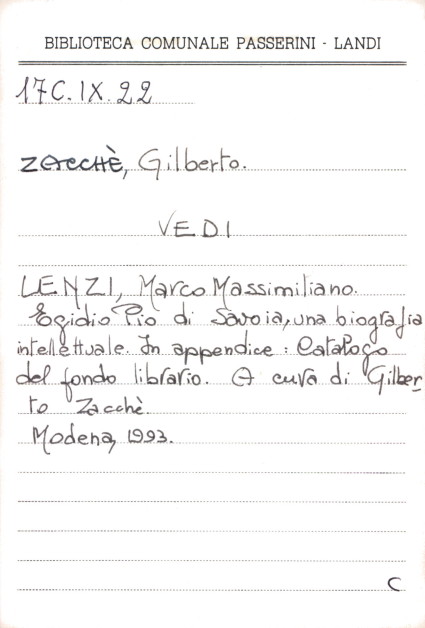 BIBLIOTECA COMUNALE PASSERINI - LANDI
17C.IX.22
ZACCHÈ, Gilberto.
VEDI
LENZI, Marco Massimiliano.
Egidio Pio di Savoia, una biografia
intellettuale. In appendice: Catalogo
del fondo librario. A cura di Gilber-
to Zacchè.
Modena, 1993.
C